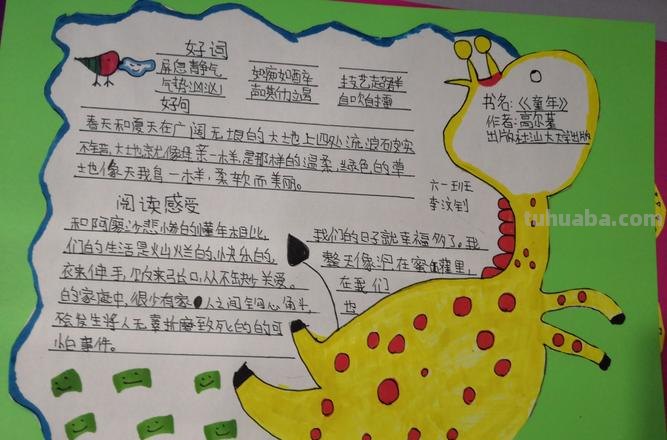 好词
屏息静气 如痴如醉 技艺超群
气势汹汹 声嘶力竭 自吹自擂
好句
春天和夏天在广阔无垠的大地上四处流浪
大地就像母亲一样,是那样的温柔,绿色的草
也像天鹅一样,柔软而美丽。
书名:《童年》
作者:高尔基
出版社汕大大学出版
六一班
李汶钊
阅读感受
和阿廖沙悲惨的童年相比,
们的生活是灿烂的,快乐的,
衣来伸手,饭来张口,从不缺少关爱。
的家庭中,很少有家人之间勾心斗角,
发生将人无辜折磨致死的的可
怕事件。
我们的日子就幸福多了。我
整天像泡在蜜罐里,
在我们
也
tuhuaba.com